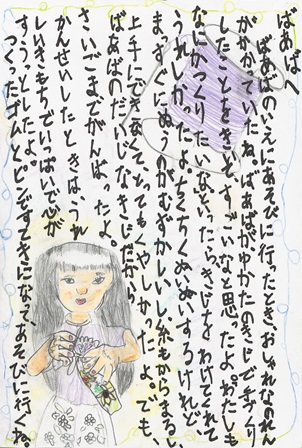 ばあばへ
ばあばのいえにあそびに行ったとき、おしゃれなのれん
がかかっていたね。ばあばがゆかたのきじで手づくり
したことをきいて、すごいなと思ったよ。わたしも
なにかつくりたいなといったら、きじをわけてくれて
うれしかったよ。ちくちくぬいぬいするけれど、
まっすぐにぬうのがむずかしいし、糸もからまるし、
上手にできなくて、とってもくやしかったよ。でも、
ばあばのだいじなきじだから
さいごまでがんばったよ。
かんせいしたときは、うれ
しいきもちでいっぱいで心が
すうっとしたよ。
つくったゴムとピンですてきになって、あそびに行くね。